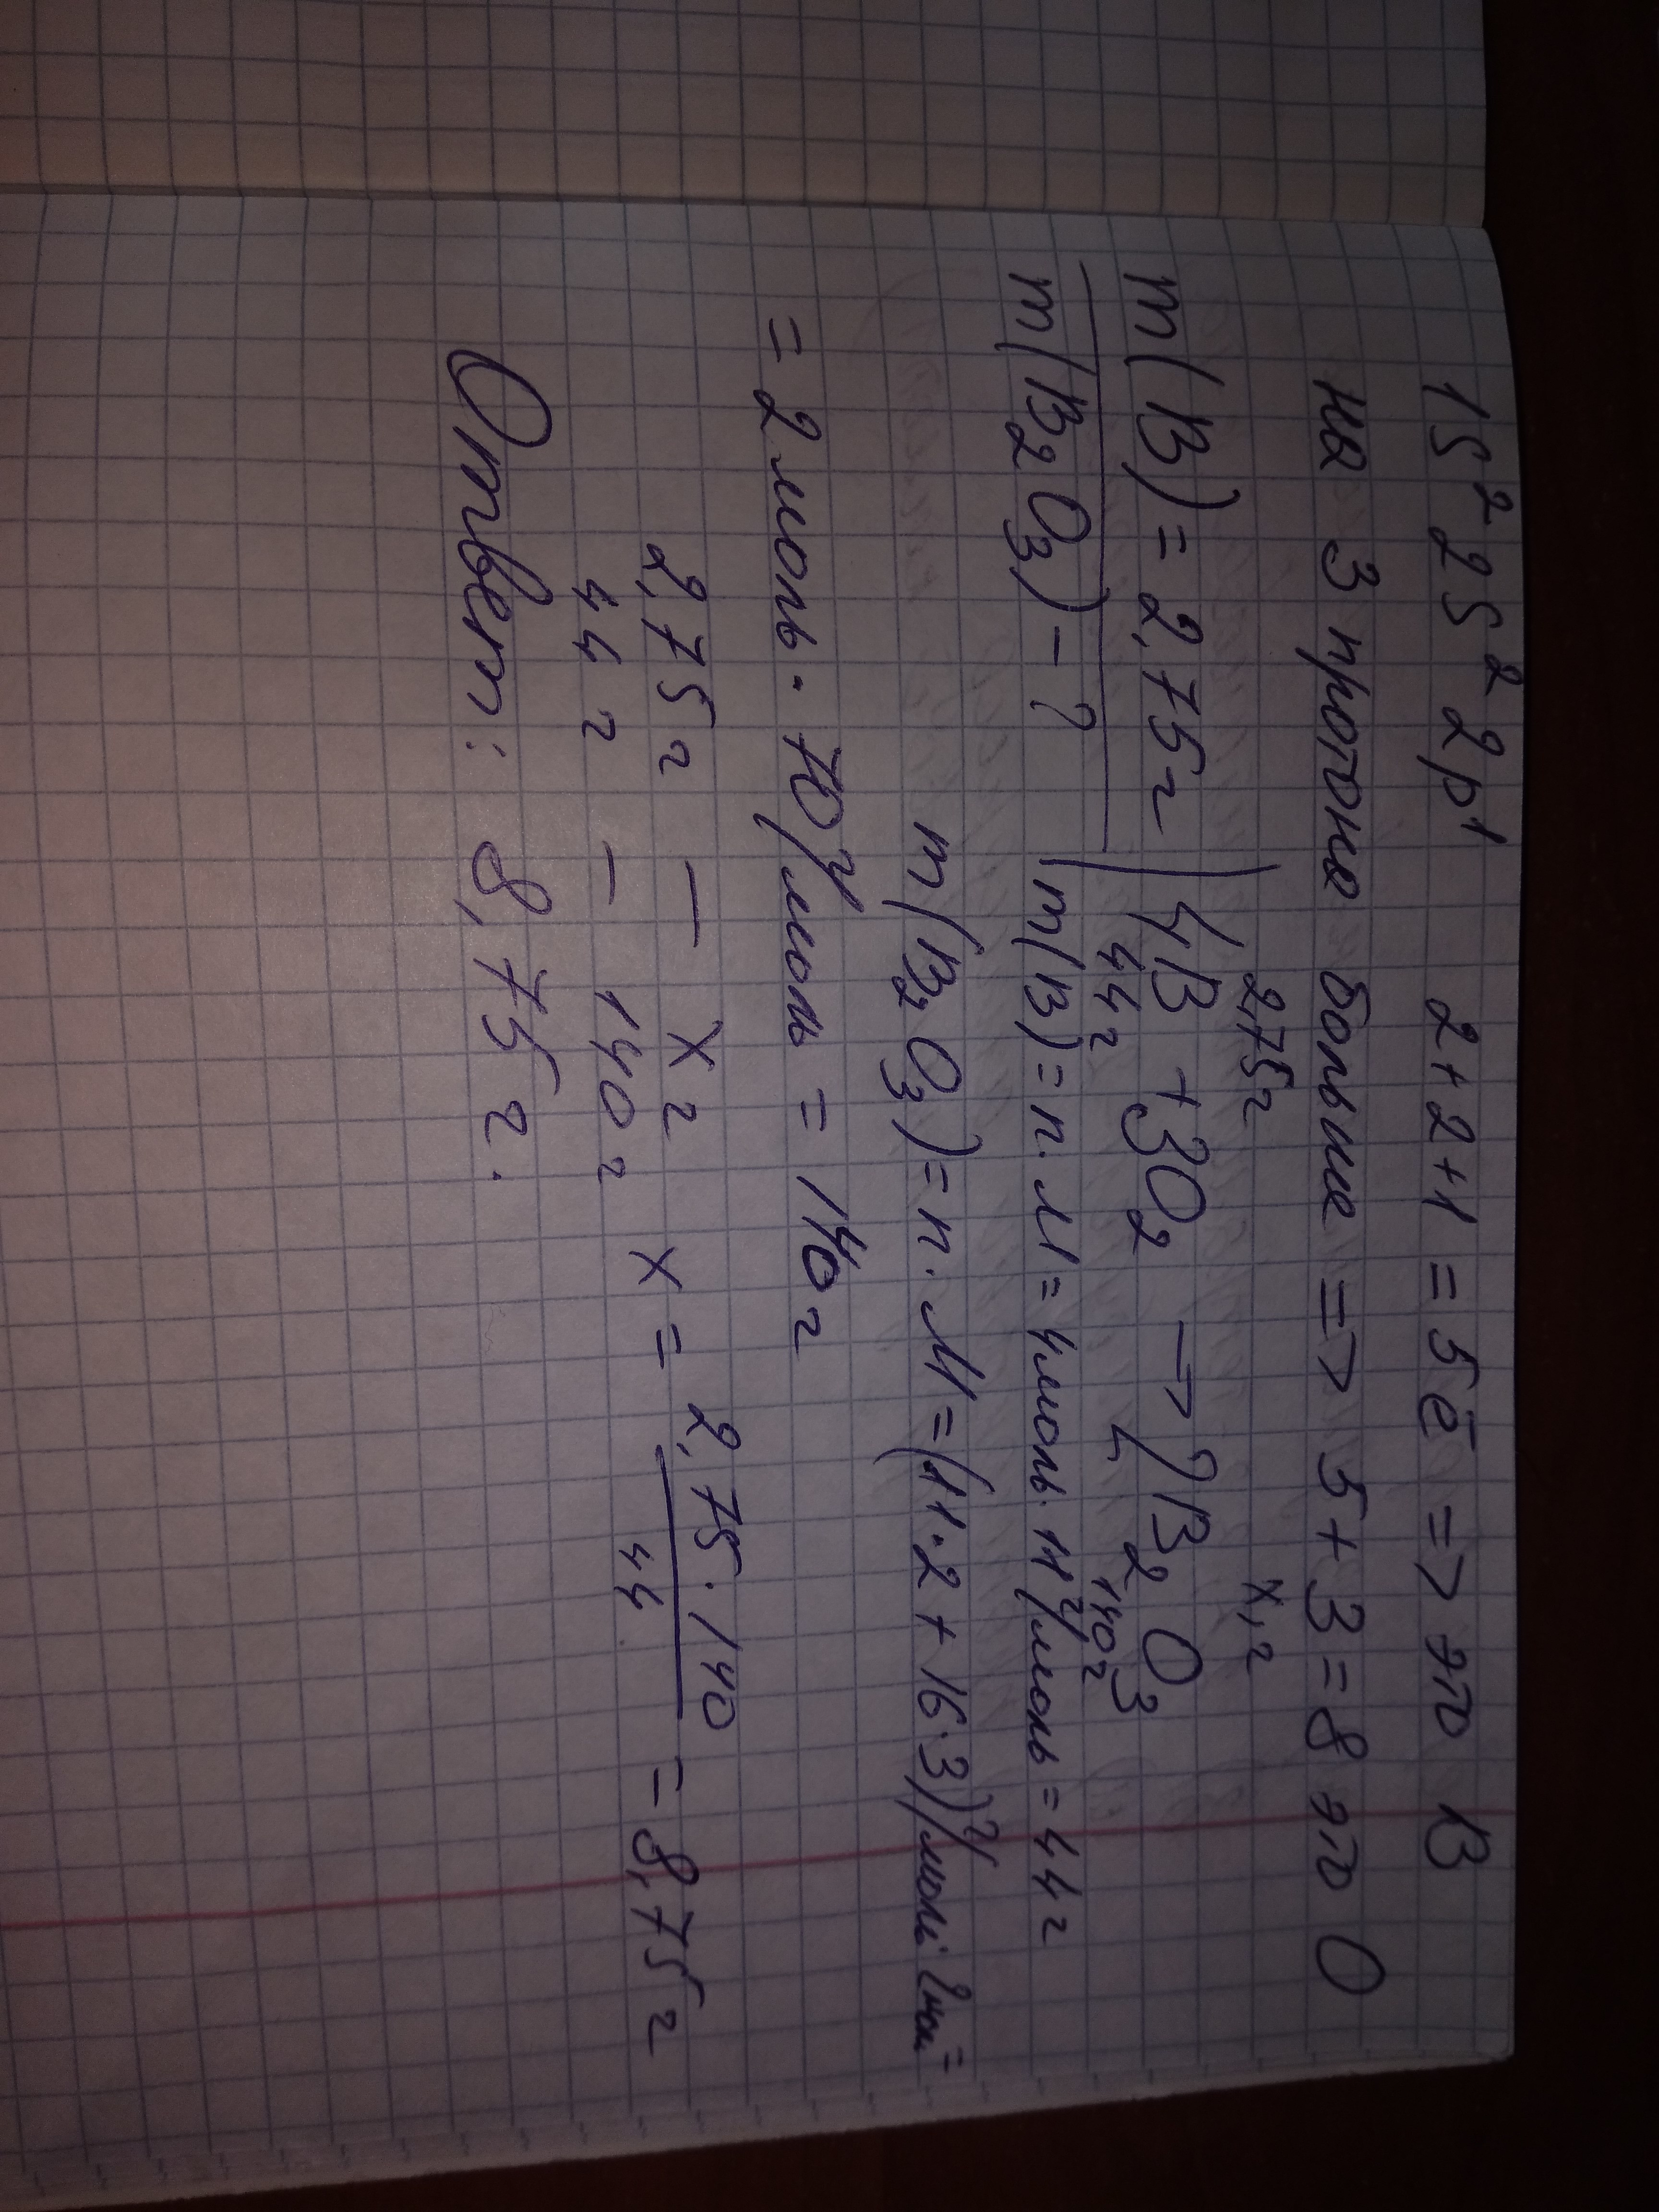 1s² 2s² 2p¹ 2+2+1=5ē => это B
на 3 протона больше => 5+3=8 это O
2,75г x, г
m(B)=2,75г 4B + 3O₂ → 2B₂O₃
44г 140г
m(B₂O₃)-? m(B)=n·M=4моль·11г/моль=44г
m(B₂O₃)=n·M=(11·2+16·3)г/моль·2мол=
=2моль·70г/моль=140г
2,75г — xг x = 2,75·140/44 = 8,75г
44г — 140г
Ответ: 8,75г.